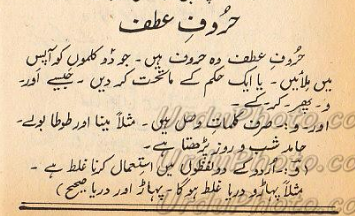 حروفِ عطف
حروفِ عطف وہ حروف ہیں۔ جو دو کلموں کو آپس
میں ملائیں۔ یا ایک حکم کے ماتحت کر دیں۔ جیسے اور۔
و۔ پھر۔ کر۔ کے۔
اور و: حرف کلمات وصل ہیں۔ مثلاً مینا اور طوطا بولے۔
حامد شب و روز پڑھتا ہے۔
(و۔ اُردو کے دو لفظوں میں استعمال کرنا غلط ہے۔
مثلاً پہاڑ و دریا غلط ہوگا۔ پہاڑ اور دریا صحیح)
UrduPhoto.com